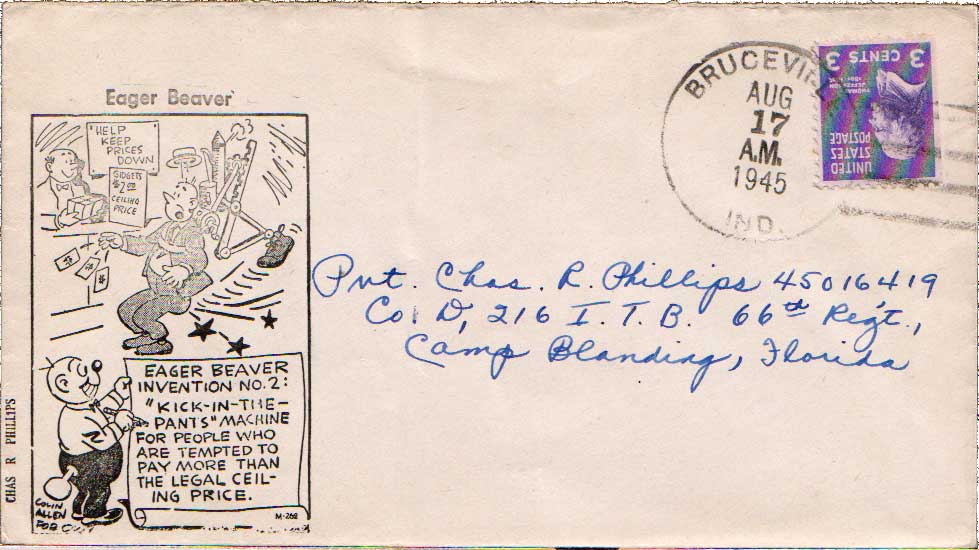 Eager Beaver
"HELP
KEEP
PRICES
DOWN
GIDGETS
$2.00
CEILING
PRICE
EAGER BEAVER
INVENTION NO. 2:
"KICK-IN-THE-
PANTS" MACHINE
FOR PEOPLE WHO
ARE TEMPTED TO
PAY MORE THAN
THE LEGAL CEIL-
ING PRICE.
COLIN
ALLEN
FOR
M-262
CHAS R PHILLIPS
BRUCEVILL
AUG
17
A.M.
1945
IND.
UNITED
STATES
POSTAGE
THOMAS
JEFFERSON
3 CENTS 3
Pvt. Chas. R. Phillips 45016419
Co. D, 216 I. T. B. 66th Reg't.,
Camp Blanding, Florida